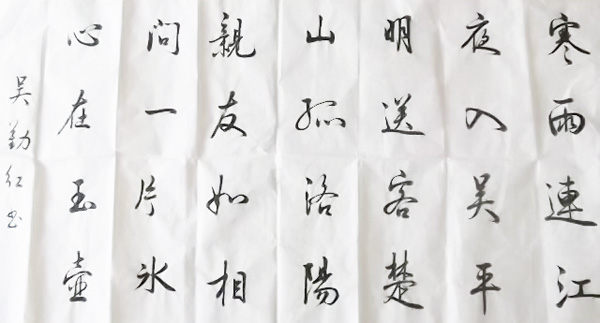 寒雨連江
夜入吴平
明送客楚
山孤洛陽
親友如相
問一片氷
心在玉壺
吴勤红书